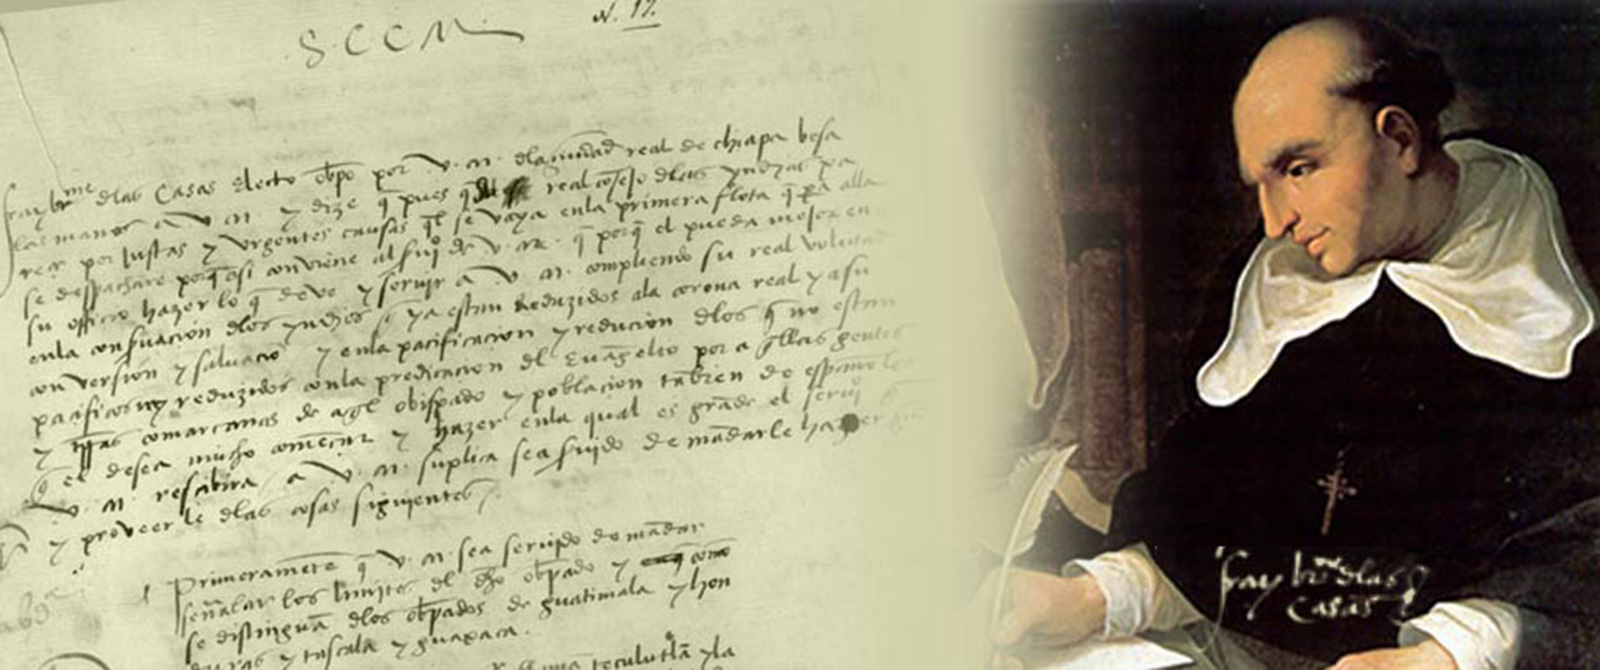 S. C. C. M.
N. 17.
fray br.me dlas Casas electo obpo por V. M. dla ciudad real de chiapa besa
las manos a V. M. y dize q pues real cōsejo dlas yndias pa
recer por Justas y Urgentes causas ql se vaya enla primera flota q pa alla
se despachare porq asi conviene al de V. M. q porq el pueda mejor en
su officio hazer lo q deve y servir a V. M. cumpliendo su real volutad
enla dlos yndios q ya estan Reduzidos ala corona real y asu
conversion y saluacio y enla pacificacion y reducion dlos q no estan
pacificos ny reduzidos conla predicacion dl Evāgelio por aqllas gentes
y trras comarcanas de aql obispado y poblacion tābien de españoles
q el desea mucho comēçar y hazer enla qual es grāde el servi
V. M. rescibira a V. M. suplica sea suido de mādarle hazer
y proveerle dlas cosas siguientes
Primeramēte q V. M. sea servido de mādar
señalar los limites dl dho obpado y como
se distinguā dlos obpados de guatimala y hon
duras y tascala y guaxaca.
teculutlā y la
fray br.me dlas
Casas